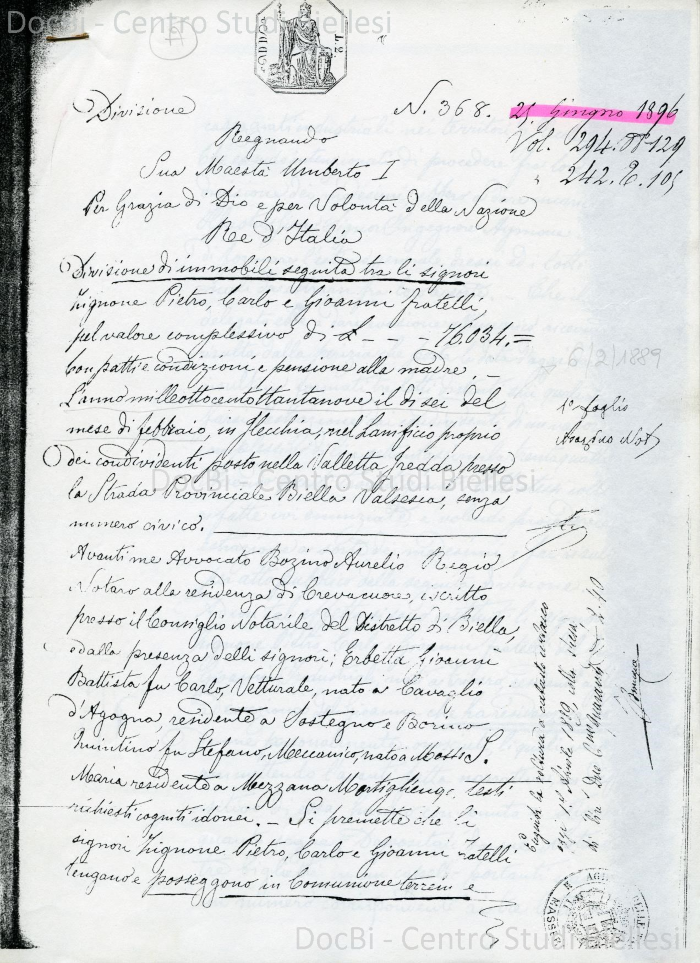 DocBi - Centro Studi Biellesi
Divisione N. 368. 25 Giugno 1896
Regnando Vol. 294. N° 129
Sua Maestà Umberto I 242. R. 105
Per Grazia di Dio e per Volontà della Nazione
Re d'Italia
Divisione di immobili seguita tra li signori
Zignone Pietro, Carlo e Gioanni fratelli,
pel valore complessivo di £ - - - 76034.=
Con patti e condizioni e pensione alla madre. -
6/2/1889
L'anno milleottocentottantanove il dì sei del
mese di febbraio, in Flecchia, nel Lanificio proprio
dei condividenti posto nella Valletta fredda presso
la Strada Provinciale Biella Valsesia, senza
numero civico.
1° foglio
Bozino Not
DocBi - Centro Studi Biellesi
Avanti me Avvocato Bozino Aurelio Regio
Notaro alla residenza di Crevacuore, iscritto
presso il Consiglio Notarile del Distretto di Biella,
e dalla presenza delli signori; Erbetta Gioanni
Battista fu Carlo, Vetturale, nato a Cavaglio
d'Agogna, residente a Sostegno e Borino
Quintino fu Stefano, Meccanico, nato a Mosso S.
Maria residente a Mezzana Mortigliengo, testi
richiesti cogniti idonei. - Si premette che li
signori Zignone Pietro, Carlo e Gioanni Fratelli
tengano e posseggono in Comunione terreni e
Eseguita la voltura a catasto urbano
oggi 1° Aprile 1889, alli numi
DocBi - Centro Studi Biellesi